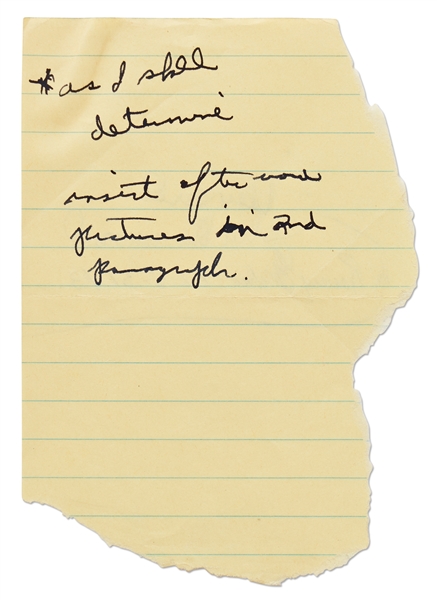 * as I shall
determine
insert after word
pictures in 2nd
paragraph.